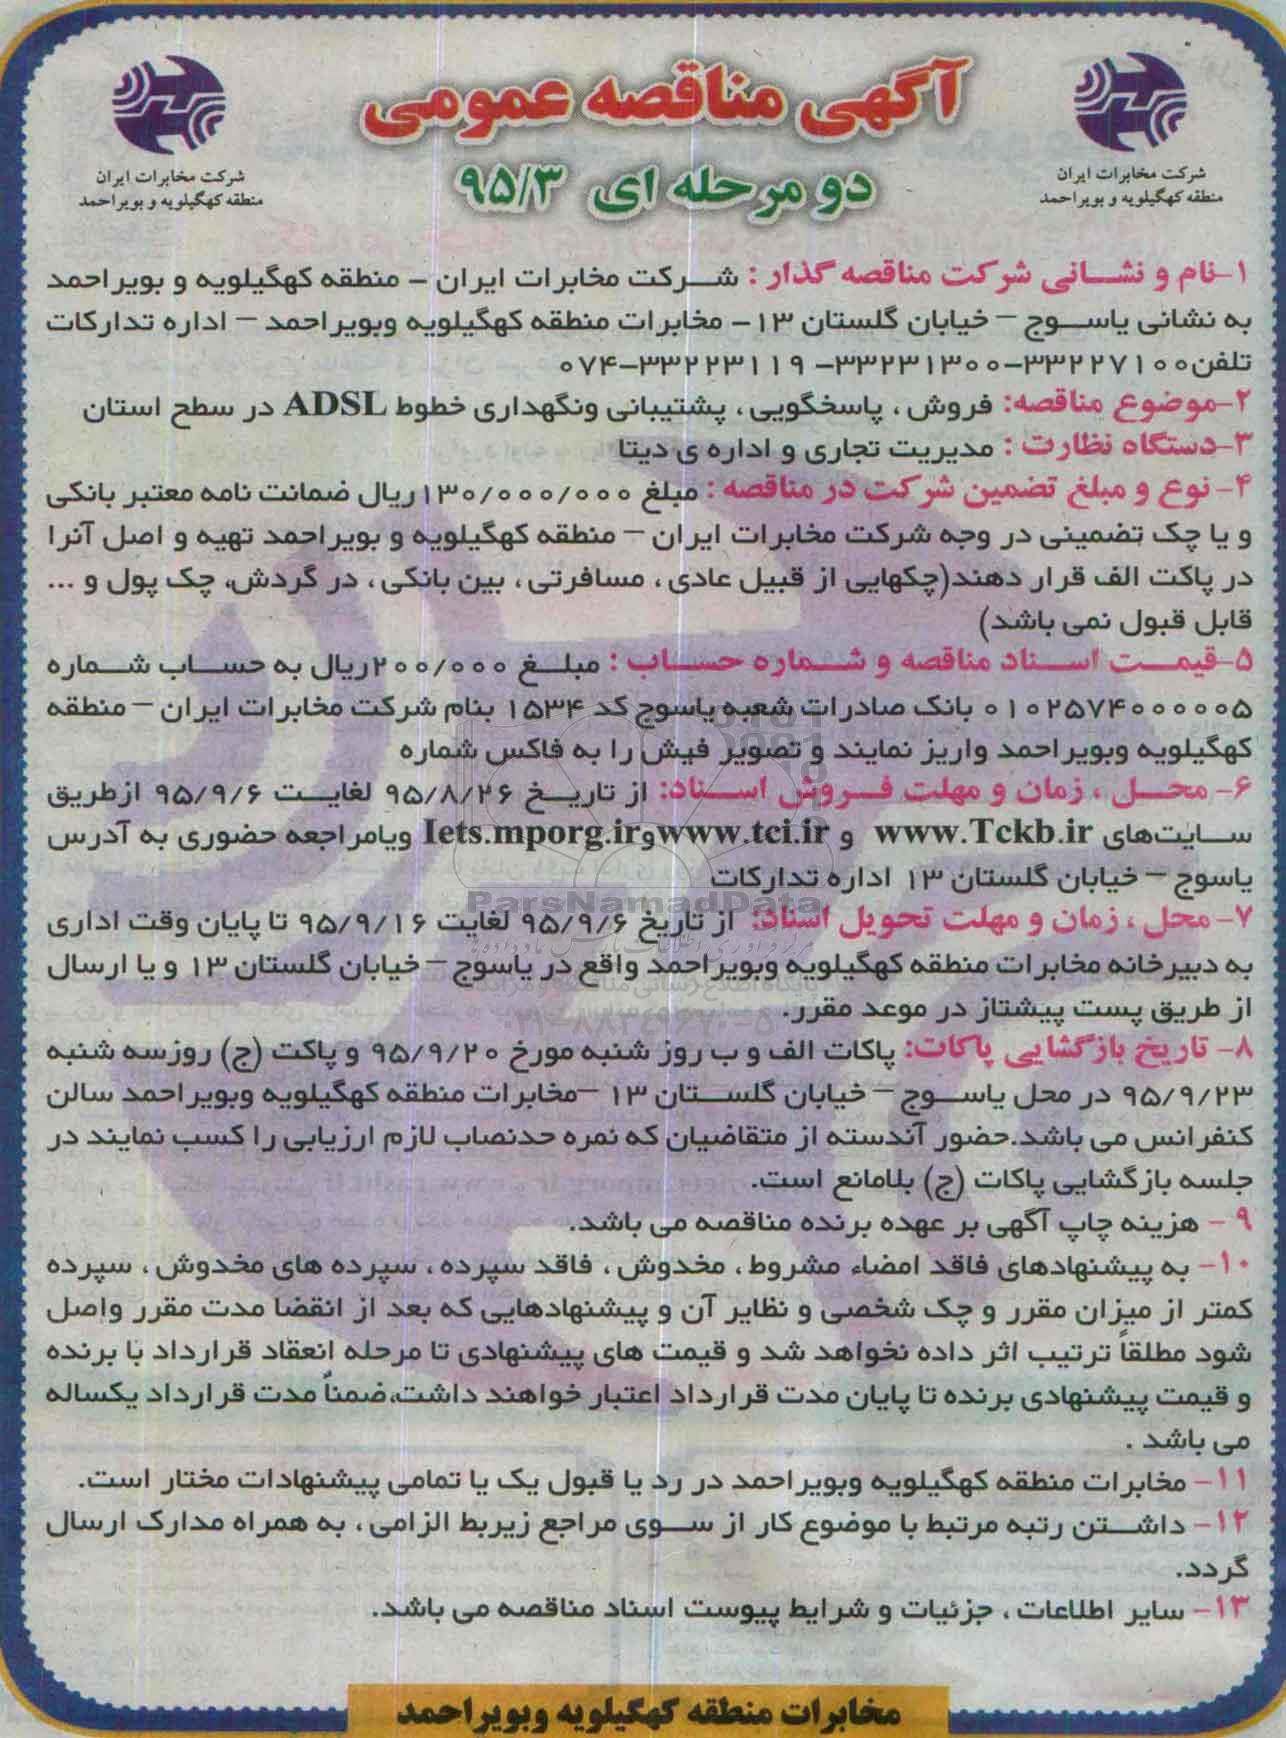 آگهی مناقصه عمومی
دو مرحله ای ۹۵/۳
شرکت مخابرات ایران
منطقه کهگیلویه و بویراحمد
شرکت مخابرات ایران
منطقه کهگیلویه و بویراحمد
۱-نام و نشانی شرکت مناقصه گذار : شرکت مخابرات ایران - منطقه کهگیلویه و بویراحمد
به نشانی یاسوج – خیابان گلستان ۱۳- مخابرات منطقه کهگیلویه وبویراحمد – اداره تدارکات
تلفن۳۳۲۲۷۱۰۰-۳۳۲۳۱۳۰۰- ۰۷۴-۳۳۲۲۳۱۱۹
۲-موضوع مناقصه: فروش ، پاسخگویی ، پشتیبانی ونگهداری خطوط ADSL در سطح استان
۳-دستگاه نظارت : مدیریت تجاری و اداره ی دیتا
۴- نوع و مبلغ تضمین شرکت در مناقصه : مبلغ ۱۳۰/۰۰۰/۰۰۰ریال ضمانت نامه معتبر بانکی
و یا چک تضمینی در وجه شرکت مخابرات ایران – منطقه کهگیلویه و بویراحمد تهیه و اصل آنرا
در پاکت الف قرار دهند(چکهایی از قبیل عادی ، مسافرتی ، بین بانکی ، در گردش، چک پول و ...
قابل قبول نمی باشد)
۵-قیمت اسناد مناقصه و شماره حساب : مبلغ ۲۰۰/۰۰۰ریال به حساب شماره
۰۱۰۲۵۷۴۰۰۰۰۰۵ بانک صادرات شعبه یاسوج کد ۱۵۳۴ بنام شرکت مخابرات ایران – منطقه
کهگیلویه وبویراحمد واریز نمایند و تصویر فیش را به فاکس شماره
۶- محل ، زمان و مهلت فروش اسناد: از تاریخ ۹۵/۸/۲۶ لغایت ۹۵/۹/۶ ازطریق
سایت‌های www.Tckb.ir و www.tci.irوIets.mporg.ir ویامراجعه حضوری به آدرس
یاسوج – خیابان گلستان ۱۳ اداره تدارکات
ParsNamadData
۷- محل ، زمان و مهلت تحویل اسناد: از تاریخ ۹۵/۹/۶ لغایت ۹۵/۹/۱۶ تا پایان وقت اداری
به دبیرخانه مخابرات منطقه کهگیلویه وبویراحمد واقع در یاسوج – خیابان گلستان ۱۳ و یا ارسال
از طریق پست پیشتاز در موعد مقرر.
۸- تاریخ بازگشایی پاکات: پاکات الف و ب روز شنبه مورخ ۹۵/۹/۲۰ و پاکت (ج) روزسه شنبه
۹۵/۹/۲۳ در محل یاسوج – خیابان گلستان ۱۳ –مخابرات منطقه کهگیلویه وبویراحمد سالن
کنفرانس می باشد.حضور آندسته از متقاضیان که نمره حدنصاب لازم ارزیابی را کسب نمایند در
جلسه بازگشایی پاکات (ج) بلامانع است.
۹ - هزینه چاپ آگهی بر عهده برنده مناقصه می باشد.
۱۰- به پیشنهادهای فاقد امضاء مشروط ، مخدوش ، فاقد سپرده ، سپرده های مخدوش ، سپرده
کمتر از میزان مقرر و چک شخصی و نظایر آن و پیشنهادهایی که بعد از انقضا مدت مقرر واصل
شود مطلقاً ترتیب اثر داده نخواهد شد و قیمت های پیشنهادی تا مرحله انعقاد قرارداد با برنده
و قیمت پیشنهادی برنده تا پایان مدت قرارداد اعتبار خواهند داشت،ضمناً مدت قرارداد یکساله
می باشد .
۱۱- مخابرات منطقه کهگیلویه وبویراحمد در رد یا قبول یک یا تمامی پیشنهادات مختار است.
۱۲- داشتن رتبه مرتبط با موضوع کار از سوی مراجع زیربط الزامی ، به همراه مدارک ارسال
گردد.
۱۳- سایر اطلاعات ، جزئیات و شرایط پیوست اسناد مناقصه می باشد.
مخابرات منطقه کهگیلویه وبویراحمد